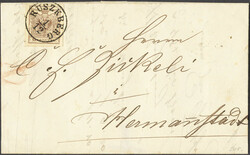 RUSZKBERG
Herrn
C. F. Zickeli
i
Hermannstadt